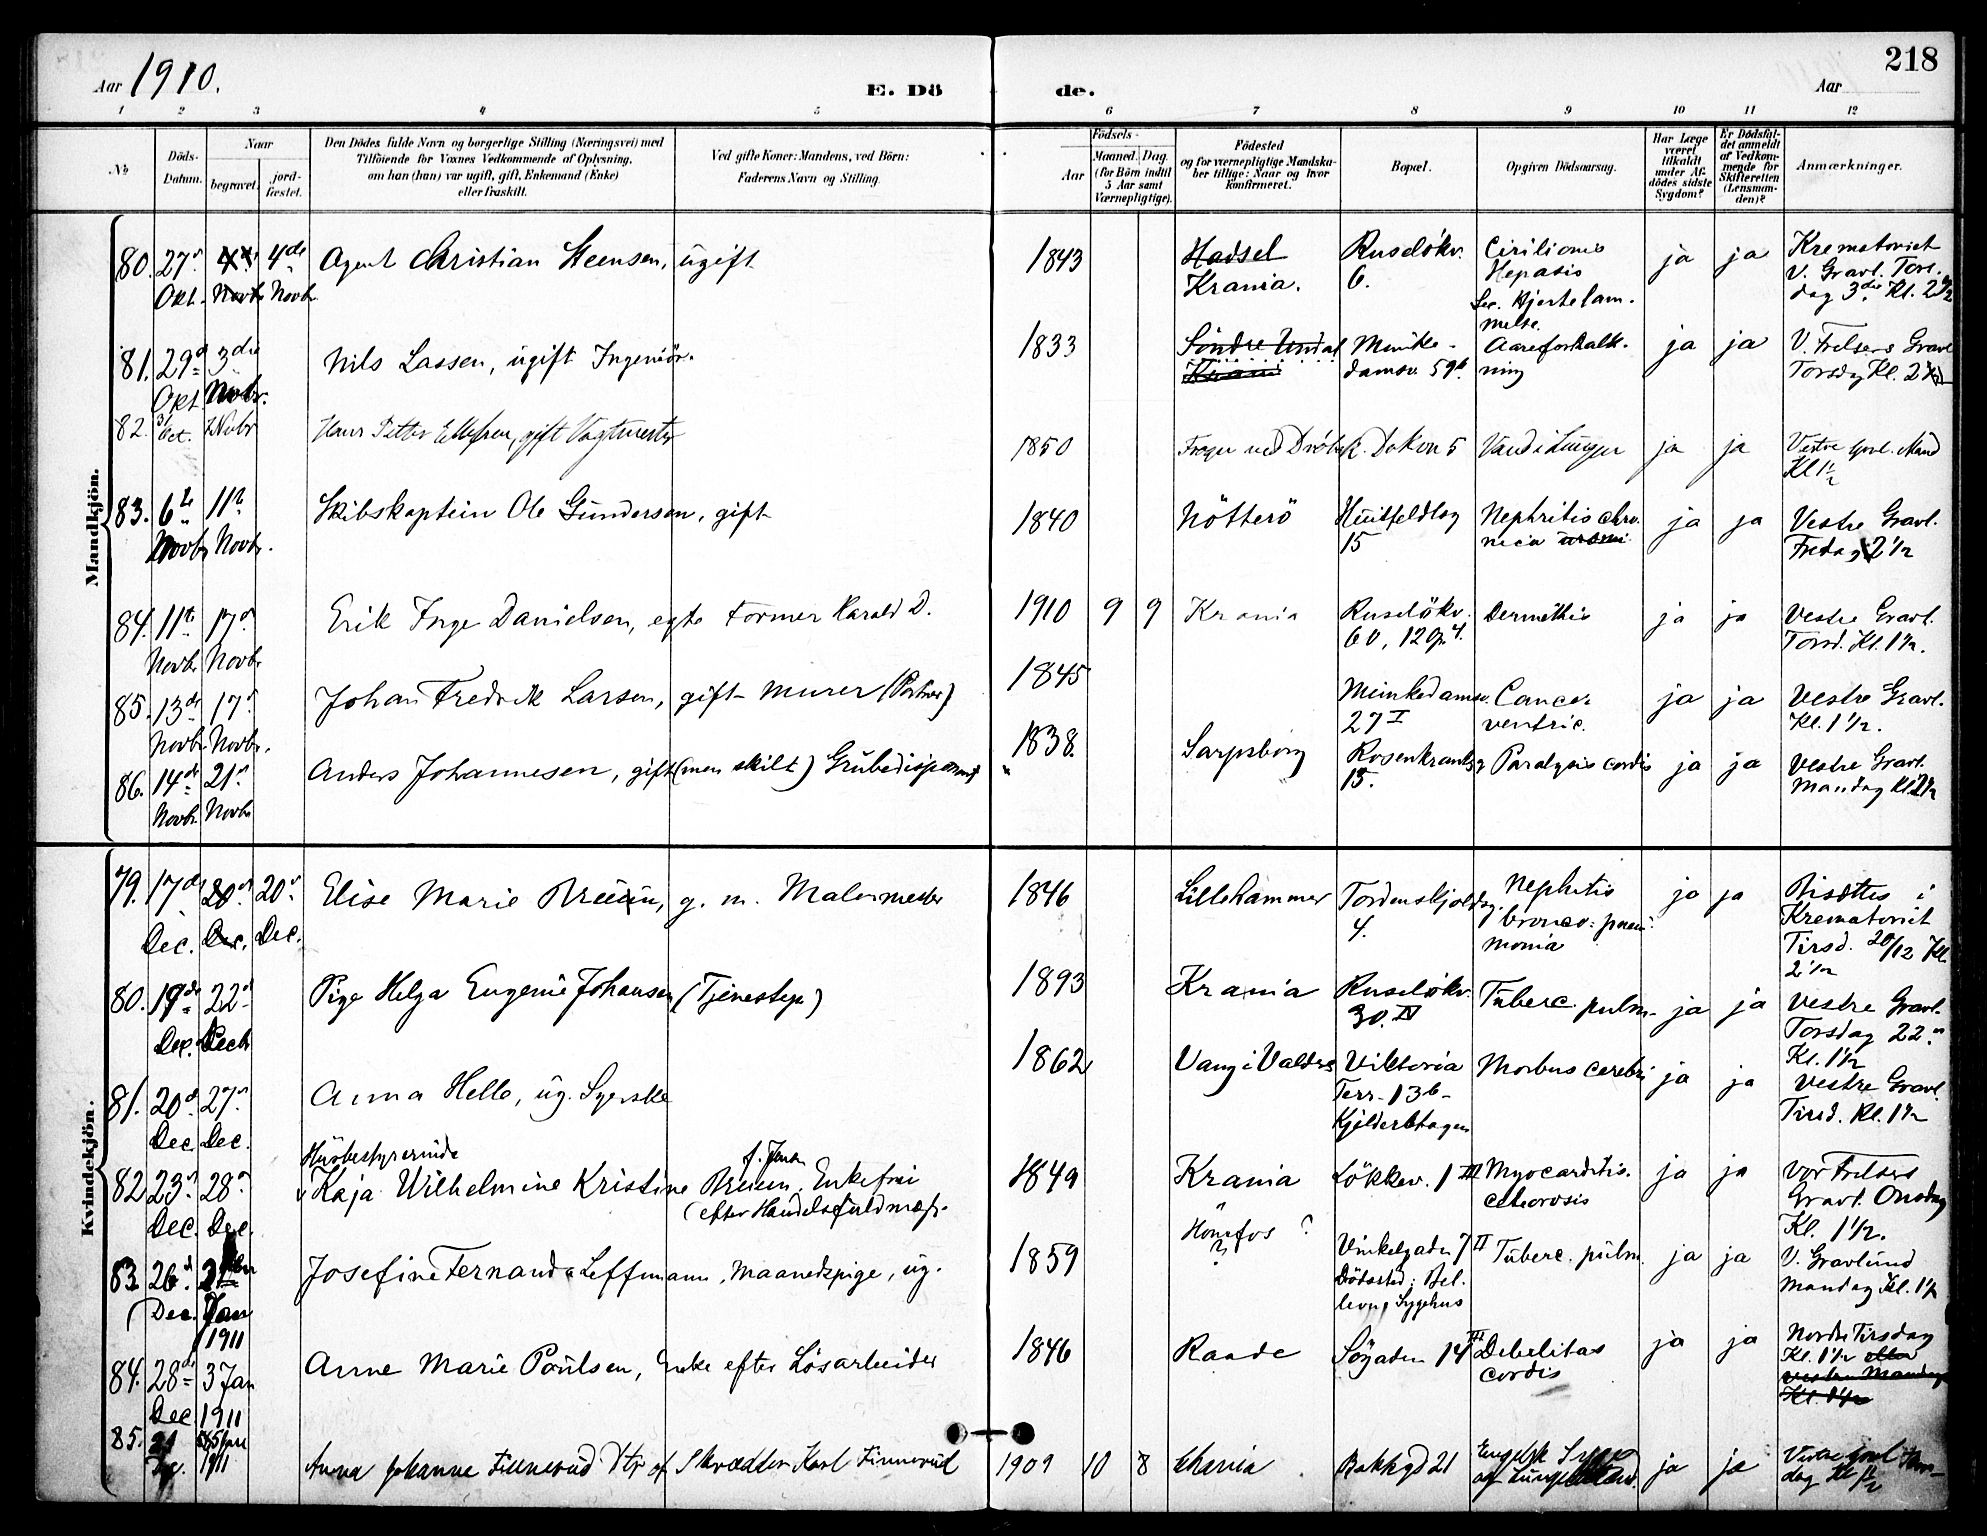 218
Aar 1910.
E. Dö de.
Aar
1 2 3 4 5 6 7 8 9 10 11 12
No
Döds-Datum.
Naar
begravet.
jord-fæstet.
Den Dödes fulde Navn og borgerlige Stilling (Næringsvei) med
Tilföiende for Voxnes Vedkommende af Oplysning,
om han (hun) var ugift, gift, Enkemand (Enke)
eller fraskilt.
Ved gifte Koner: Mandens, ved Börn:
Faderens Navn og Stilling.
Födsels-
Aar
Maaned. Dag.
(for Börn indtil
5 Aar samt
Værnepligtige).
Födested
og for værnepligtige Mandska-
ber tillige: Naar og hvor
konfirmeret.
Bopæl.
Opgiven Dödsaarsag.
Har Læge
været
tilkaldt
under Af-
dödes sidste
Sygdom?
Er Dödsfal-
det anmeldt
af Vedkom-
mende for
Skifteretten
(Lensman-
den)?
Anmærkninger.
Mandkjön.
80. 27 Okt. 4de Novbr. Agent Christian Steensen, ugift 1843 Hadsel Krania. Ruselökv. 6. Hepatis Hjertelammelse. ja ja Krematoriet V. Gravl. Torsdag 3die Kl. 2 1/2
81. 29 Okt. 3die Novbr. Nils Lassen, ugift Ingeniör. 1833 Söndre Undal Munkedamsv. 59b Aareforkalkning ja ja V. Frelsers Gravl Torsdag Kl. 2
82. Oct. Novbr Hans Petter Ellefsen, gift Vagtmester 1850 ved Dröbak. Dokvn 5 Vand i Lunger ja ja Vestre Gravl. Mand Kl 1 1/2
83. 6te Novbr 11te Novbr. Skibskaptein Ole Gundersen, gift 1840 Nötterö Huitfeldtsg 15 Nephritis chronica ja ja Vestre Gravl. Fredag 2 1/2
84. 11te Novbr. 17 Novbr. Erik Inge Danielsen, egte Former Harald D. 1910 9 9 Krania Ruselökv. 60, 12 Opg 4. ja ja Vestre Gravl. Torsd. Kl. 1 1/2.
85. 13de Novbr. 17 Novbr. Johan Fredrik Larsen, gift Murer (Portner) 1845 Munkedamsv. 27 I Cancer ventric. ja ja Vestre Gravl. Kl. 1 1/2.
86. 14de Novbr. 21 Novbr. Anders Johannesen, gift (men skilt) Grubedisponent 1838. Sarpsborg Rosenkrantzg 15. Paralysis cordis ja ja Vestre Gravl. Mandag Kl. 2 1/2
Kvindekjön.
79. 17de Dec. 20 Dec. 20 Dec. Elise Marie Bruun, g. m. Malermester 1846 Lillehammer Tordenskjoldsg. 4. Nephritis bronco: pneumonia ja ja Bisættes i Krematoriet Tirsd. 20/12 Kl. 2 1/2
80. 19de Dec. 22 Decb Pige Helga Eugenie Johansen (Tjenestepe) 1893 Krania Ruselökv. 30. IV Tuberc. pulm. ja ja Vestre Gravl. Torsdag 22. Kl. 1 1/2
81. 20de Dec. 27 Dec. Anna Helle, ug. Syerske 1862 Vang i Valdres Viktoria Terr. 13b Morbus cerebri ja ja Vestre Gravl. Tirsd. Kl. 1 1/2
82 23 Dec. 28 Dec. Husbestyrerinde Kaja Wilhelmine Kristine Bruun f. Jensen Enkefru (efter Handelsfuldmægt. 1849 Krania Lökkev. 1 III Myocarditis. ja ja Vor Frelsers Gravl. Onsdag Kl. 1 1/2.
83. 26 Dec. Jan 1911 Josefine Fernanda Leffmann, Maanedspige, ug. 1859 Hönefos ? ? Vinkelgaden 7 II Dödssted: Bel. Sygehus Tuberc. pulm. ja ja V. Gravlund Mandag Kl. 1 1/2
84. 28de Dec. 3 Jan 1911 Anne Marie Poulsen, Enke efter Lösarbeider 1846 Raade Sögaden 14 III Debilitas cordis ja ja Nordre Tirsdag Kl. 1 1/2 eller Mandag Kl. 1 1/2
85. Dec. 1911 Anna Johanne Finnerud Dtr af Skrædder Karl Finnerud 1909 10 8 Chania Bakkgd 21 Engelsk Syge og ja ja Vestre Gravl dag Kl 1 1/2